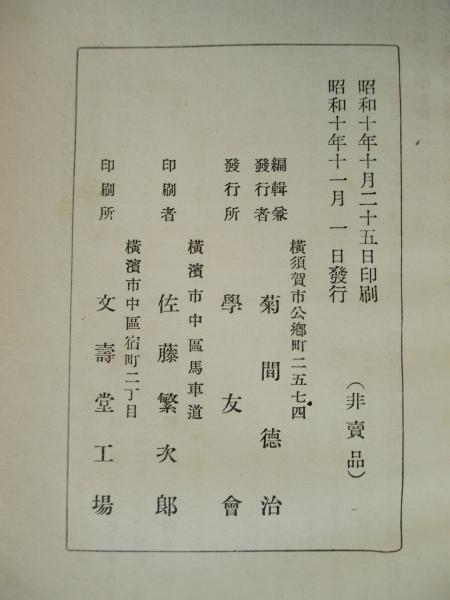 昭和十年十月二十五日印刷
昭和十年十一月一日發行
（非賣品）
橫須賀市公鄕町二五七四
編輯兼
發行者
菊間德治
發行所
學友會
橫濱市中區馬車道
印刷者
佐藤繁次郎
橫濱市中區宿町二丁目
印刷所
文壽堂工場